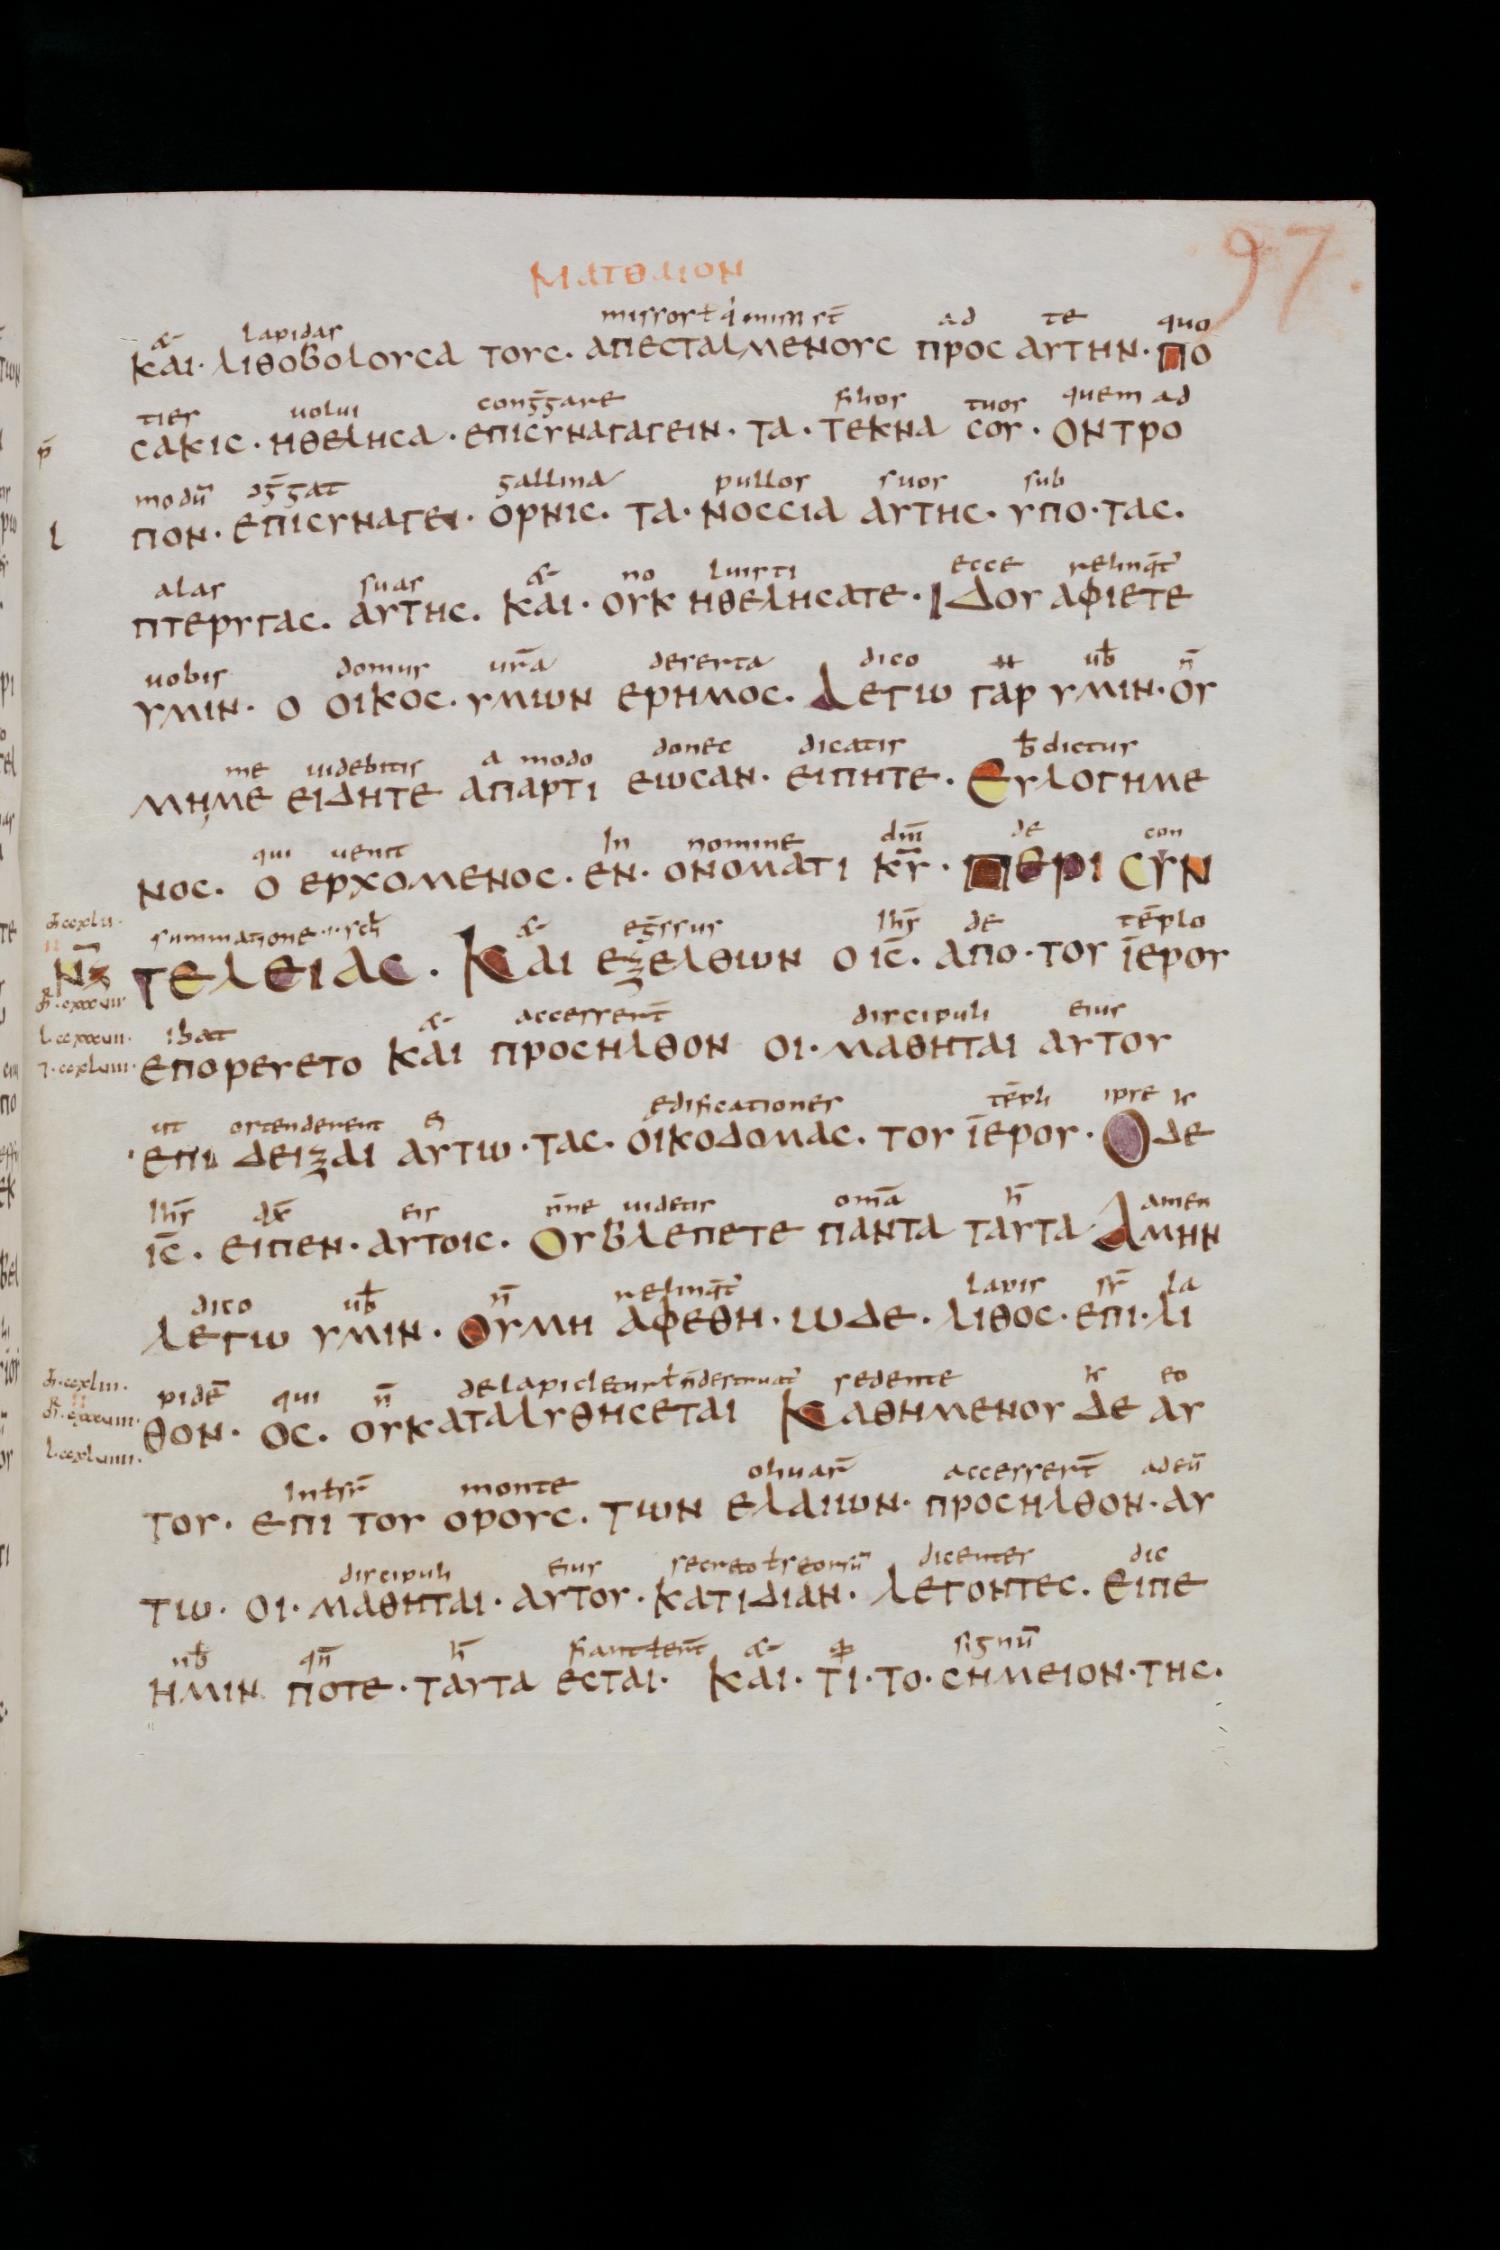 97.
ΜΑΤΘΑΙΟΝ
lapidas missos ł q̇ missi st̄ ad te quo
ΚΑΙ· ΛΙΘΟΒΟΛΟΥCΑ ΤΟΥC· ΑΠΕCΤΑΛΜΕΝΟΥC ΠΡΟC ΑΥΤΗΝ· ΠΟ
ties uolui congḡare filios tuos quem ad
p̄
CΑΚΙC· ΗΘΕΛΗCΑ· ΕΠΙCΥΝΑΓΑΓΕΙΝ· ΤΑ· ΤΕΚΝΑ COY· ΟΝ ΤΡΟ
modū gallina pullos suos sub
l
ΠΟΝ· ΕΠΙCΥΝΑΓΕΙ· ΟΡΝΙC· ΤΑ· ΝΟCCΙΑ ΑΥΤΗC· ΥΠΟ· ΤΑC·
alas suas & no luisti ecce relinq̄t
ΠΤΕΡΥΓΑC· ΑΥΤΗC· ΚΑΙ· ΟΥΚ ΗΘΕΛΗCΑΤΕ· ΙΔΟΥ ΑΦΙΕΤΕ
uobis domus ur̄a deserta dico ub̄ n̄
ΥΜΙΝ· Ο ΟΙΚΟC· ΥΜΩΝ ΕΡΗΜΟC· ΛΕΓΩ ΓΑΡ ΥΜΙΝ· ΟΥ
me uidebitis a modo donec dicatis b̄dictus
ΜΗΜΕ ΕΙΔΗΤΕ ΑΠΑΡΤΙ ΕΩCΑΝ· ΕΙΠΗΤΕ· ΕΥΛΟΓΗΜΕ
qui uenit In nomine dn̄i de con
ΝΟC· Ο ΕΡΧΟΜΕΝΟC· ΕΝ· ΟΝΟΜΑΤΙ Κ̄Υ· ΠΕΡΙ CΥΝ
summatione & eḡssus Ih̄s de tēplo
ΤΕΛΕΙΑC· ΚΑΙ ΕΞΕΛΘΩΝ Ο ΙC̄· ΑΠΟ· ΤΟΥ ΙΕΡΟΥ
ibat & accessert̄ discipuli eius
l·ccxxxuii·
ΕΠΟΡΕΥΕΤΟ ΚΑΙ ΠΡΟCΗΛΘΟΝ ΟΙ· ΜΑΘΗΤΑΙ ΑΥΤΟΥ
ut ostenderent ei edificationes tēpli ipse
ΕΠΙ ΔΕΙΞΑΙ ΑΥΤΩ· ΤΑC· ΟΙΚΟΔΟΜΑC· ΤΟΥ ΙΕΡΟΥ· Ο ΔΕ
Ih̄s dx̄ eis n̄ne uidetis om̄a h̄ amen
ΙC̄· ΕΙΠΕΝ· ΑΥΤΟΙC· ΟΥ ΒΛΕΠΕΤΕ ΠΑΝΤΑ ΤΑΥΤΑ ΑΜΗΝ
dico ub̄ n̄ relinq̄t lapis sr̄ la
ΛΕΓΩ ΥΜΙΝ· ΟΥΜΗ ΑΦΕΘΗ· ΩΔΕ· ΛΙΘΟC· ΕΠΙ· ΛΙ
pidē qui n̄ sedente eo
ΘΟΝ· ΟC· ΟΥΚΑΤΑΛΥΘΗCΕΤΑΙ ΚΑΘΗΜΕΝΟΥ ΔΕ ΑΥ
monte oliuar̄ accesserт̄ adeū
ΤΟΥ· ΕΠΙ ΤΟΥ ΟΡΟΥC· ΤΩΝ ΕΛΑΙΩΝ· ΠΡΟCΗΛΘΟΝ· ΑΥ
discipuli eius secreto ł seorsū dicentes dic
ΤΩ· ΟΙ· ΜΑΘΗΤΑΙ· ΑΥΤΟΥ· ΚΑΤΙΔΙΑΝ· ΛΕΓΟΝΤΕC· ΕΙΠΕ
nb̄ qn̄ h̄ & signū
ΗΜΙΝ ΠΟΤΕ· ΤΑΥΤΑ ΕCΤΑΙ· ΚΑΙ· ΤΙ· ΤΟ· CΗΜΕΙΟΝ· ΤΗC·